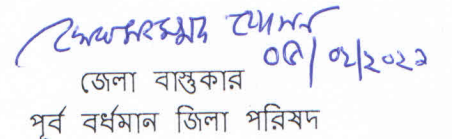 ০৫/০২/২০২১
জেলা বাস্তুকার
পূর্ব বর্ধমান জিলা পরিষদ